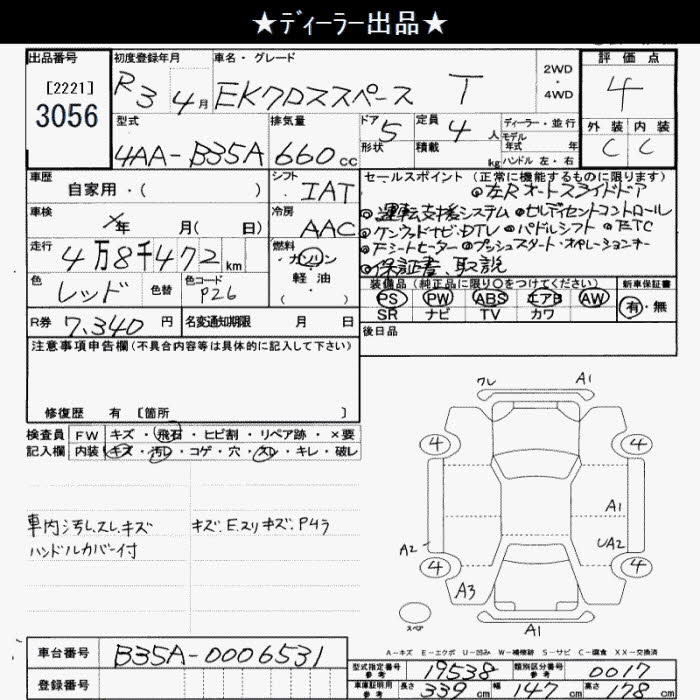 ★ディーラー出品★
出品番号
[2221]
3056
初度登録年月
R3 4月
車名・グレード
EKクロススペース T
2WD
・
4WD
評価点
4
外装 内装
C C
型式
4AA-B35A
排気量
660cc
ドア
5
形状
定員
4人
積載
kg
ディーラー・並行
モデル
年式 年
ハンドル 左・右
車歴
自家用・( )
シフト
IAT
車検
年 月( 日)
冷房
AAC
走行
4万8千472km
燃料
ガソリン
・
軽油
・
( )
色
レッド
色替
色コード
P26
R券 7,340円
名変通知期限 月 日
セールスポイント(正常に機能するものに限ります)
◎左Rオートスライドドア
◎運転支援システム ◎ヒルディセントコントロール
◎ケンウッドナビ・DTV ◎パドルシフト ◎ETC
◎Fシートヒーター ◎プッシュスタート・オペレーションキー
◎保証書、取説
装備品(純正品に限り○をつけてください)
新車保証書
PS PW ABS エアB AW
SR ナビ TV カワ
有・無
後日品
注意事項申告欄(不具合内容等は具体的に記入して下さい)
修復歴 有 [箇所 ]
検査員
記入欄
FW キズ・飛石・ヒビ割・リペア跡・×要
内装 キズ・汚レ・コゲ・穴・スレ・キレ・破レ
車内汚レ、スレ、キズ
ハンドルカバー付
キズ、E、スリキズ、P4ラ
ワレ A1
4 4
A1
A2 UA2
4 4
A3
スペア
A1
A-キズ E-エクボ U-凹み W-補修跡 S-サビ C-腐食 XX-交換済
車台番号
B35A-0006531
登録番号
型式指定番号
参考
19538
類別区分番号
参考
0017
車庫証明用
参考
長さ 339cm 幅 147cm 高さ 178cm